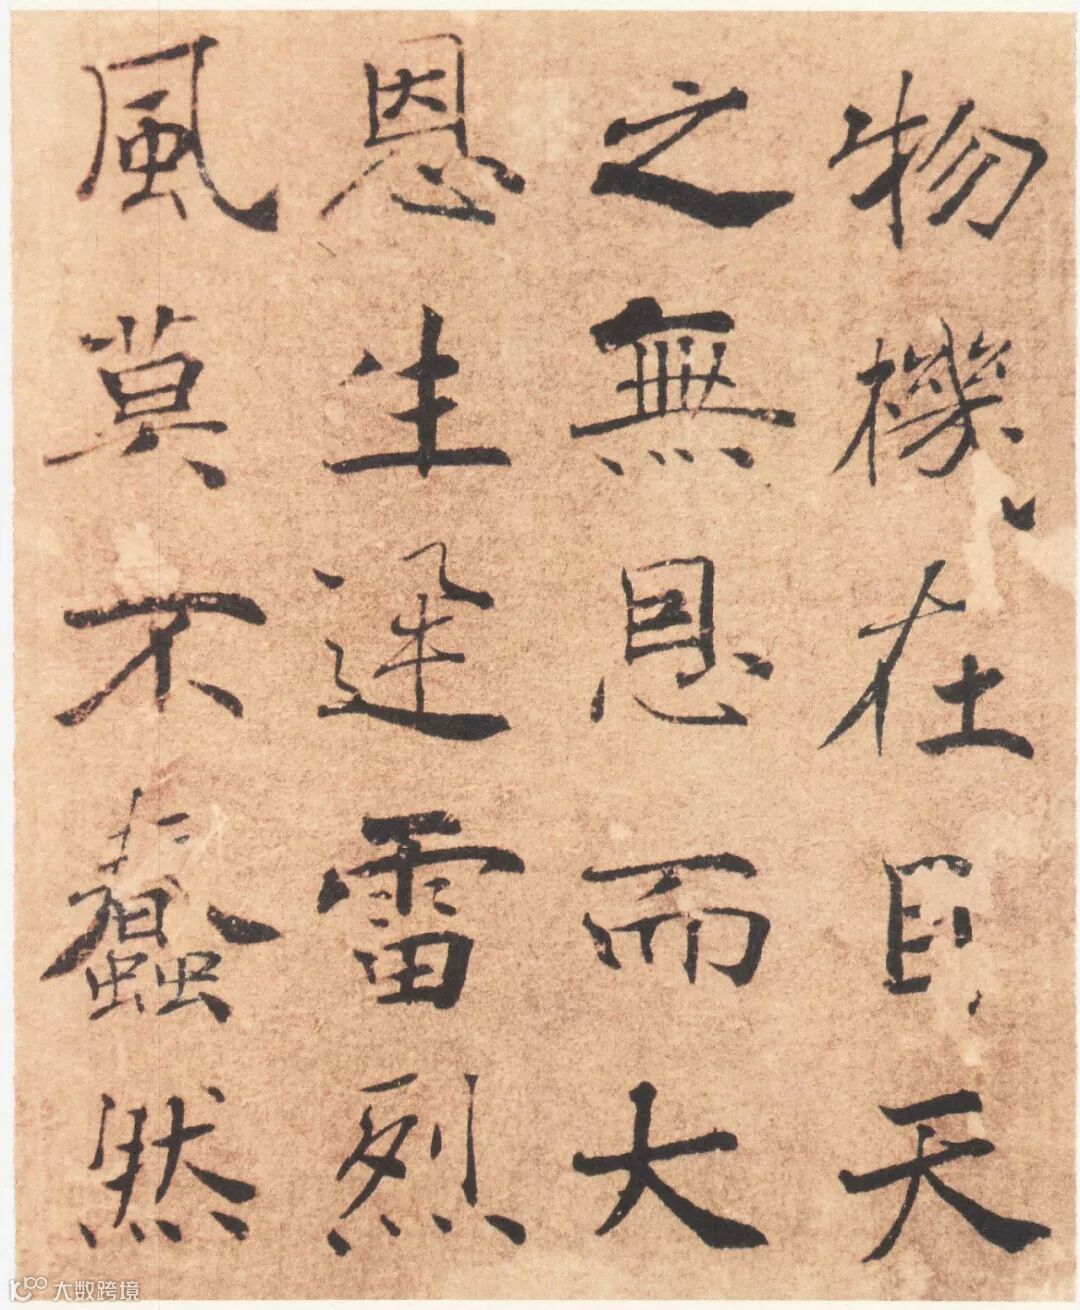 物機在目天
之無恩而大
恩生迅雷烈
風莫不蠢然
大数跨境